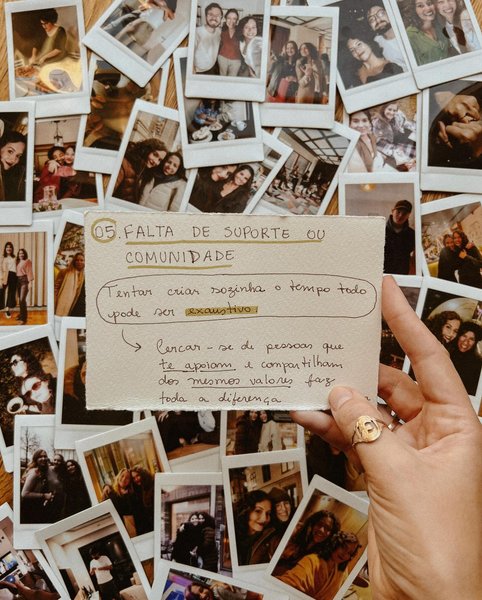 05. FALTA DE SUPORTE OU
COMUNIDADE
Tentar criar sozinha o tempo todo
pode ser exaustivo
→ Cercar-se de pessoas que
te apoiam e compartilham
dos mesmos valores faz
toda a diferença